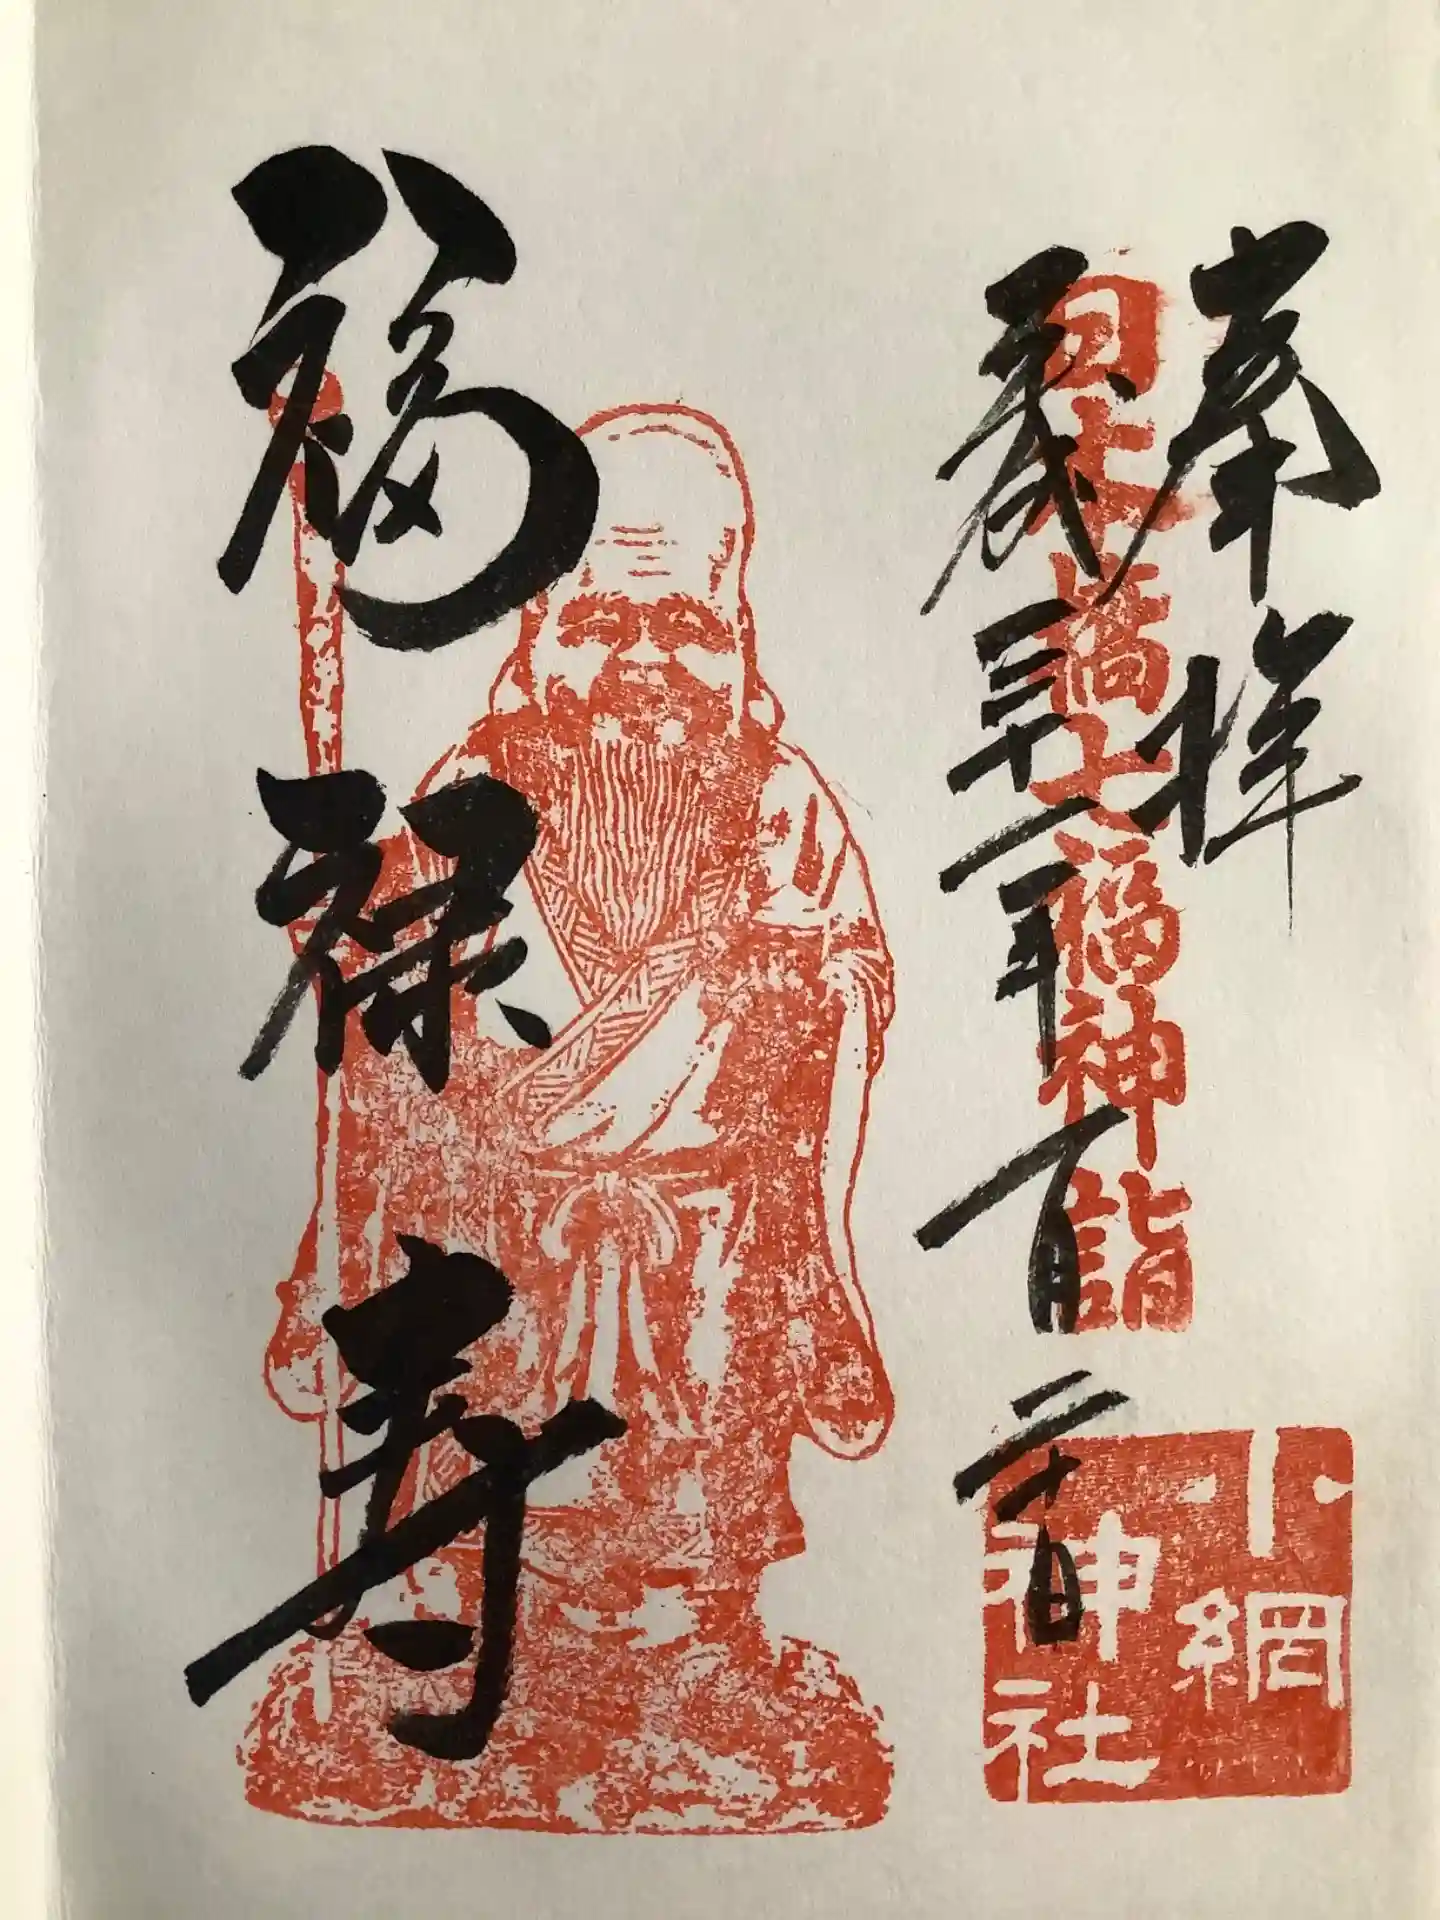 奉拝
日本橋七福神詣
平成三十一年一月二日
小網
神社
福禄寿